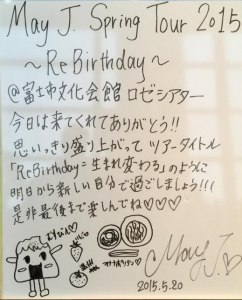 May J. Spring Tour 2015
～ReBirthday～
@富士市文化会館 ロゼシアター
今日は来てくれてありがとう!!
思いっきり盛り上がって ツアータイトル
「ReBirthday=生まれ変わる」のように
明日から新しい自分で過ごしましょう!!!
是非最後まで楽しんでね♡♡♡
May J.
2015.5.20